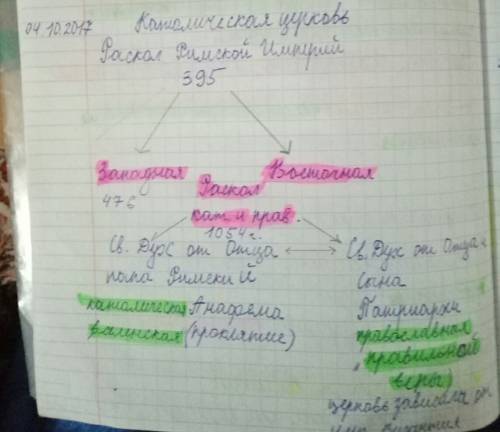 04.10.2017 Католическая церковь
Раскол Римской Империй
395
Западная Восточная
476
Раскол
кат и прав.
1054 г.
Св. Дух от Отца
папа Римский
католическая Анафема
(проклятие)
Св. Дух от Отца и
Сына
Патриархи
православная
"правильной
веры)
церковь зависела от